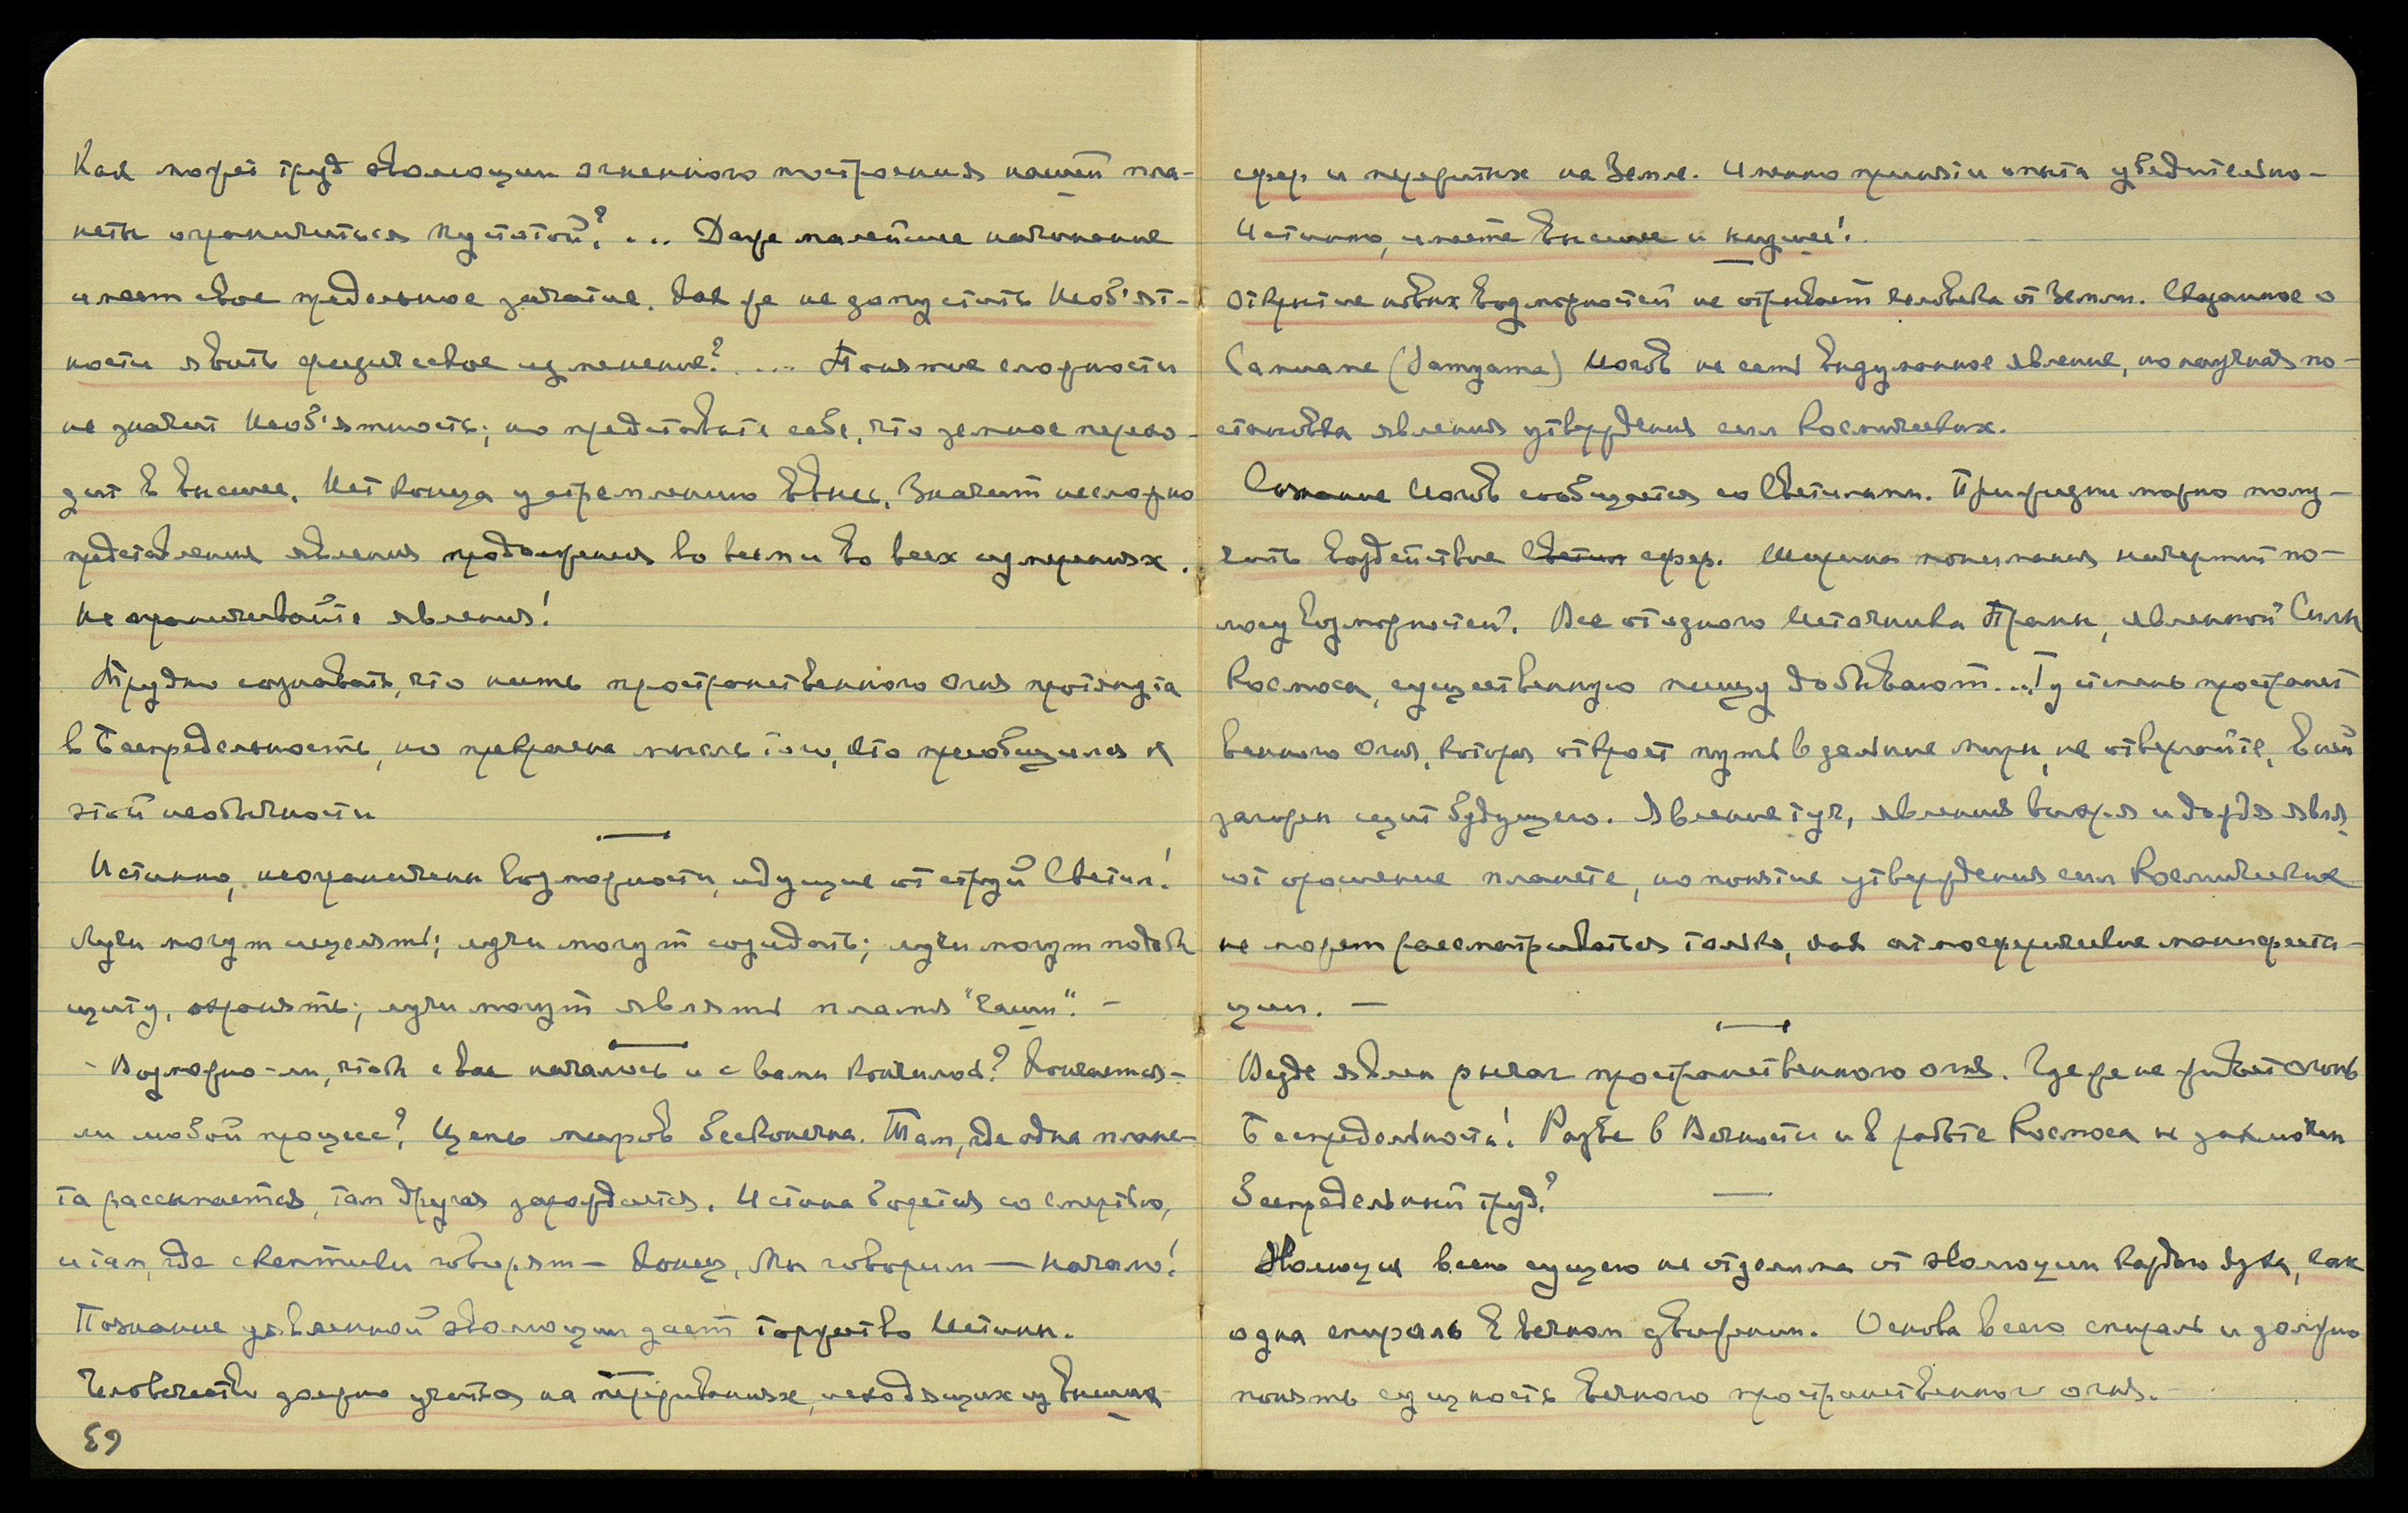 Как может труд эволюции огненного построения нашей пла-
неты ограничиться пустотой? ... Даже малейшее начинание
имеет свое предельное зачатие. Как же не допустить Необ'ят-
ности явить физическое изменение? ... Понятие сложности
не значит Необ'ятность; но представьте себе, что земное перехо-
дит в высшее. Нет конца устремлению ввысь. Значит несложно
представление явления продолжения во всем и во всех измерениях.
Не ограничивайте явления!
Трудно сознавать, что нить пространственного Огня протянута
в Беспредельность, но прекрасна мысль того, кто приобщился к
этой необычности
Истинно, неограничены возможности, идущие от струй Светил!
Лучи могут исцелять; лучи могут созидать; лучи могут подать
щиту, охранять; лучи могут являть пламя "Чаши". –
– Возможно-ли, чтоб с вас началось и с вами кончилось? Кончается-
ли любой процесс? Цепь миров бесконечна. Там, где одна плане-
та рассыпается, там другая зарождается. Истина борется со смертью,
и там, где скептики говорят – Конец, Мы говорим – Начало!
Познание уявленной эволюции дает торжество Истины.
Человечество должно учиться на переживаниях, исходящих из высших
63
сфер и пережитых на Земле. Именно принятие опыта убедительно –
Истинно, имеете высшее и низшее!
Открытие новых возможностей не отрывает человека от Земли. Сказанное о
Самиаме (Samyama) Йогов не есть выдуманное явление, но научная по-
становка явления утверждения сил Космических.
Сознание Йогов сообщается со Светилами. При жизни можно полу-
чить воздействие Светил сфер. Ширина понимания начертит по-
лосу возможностей. Все от одного Источника Праны, явленной Силы
Космоса, существенную пищу добывают... Густилань пространст
венного Огня, которая откроет путь в дальние миры, не отвергайте, в ней
заложен щит будущего. Явление туч, явления вихря и дождя явля
ют орошение планете, но понятие утверждения сил Космических
не может рассматриваться только, как атмосферические манифеста-
ции. –
Везде явлен рычаг пространственного огня. Где же не живет Огонь
Беспредельности! Разве в Вечности и в работе Космоса не заключен
беспредельный труд?
Эволюция всего сущего не отделима от эволюции каждого духа, как
одна спираль в вечном движении. Основа всего спираль и должно
понять сущность вечного пространственного огня. –